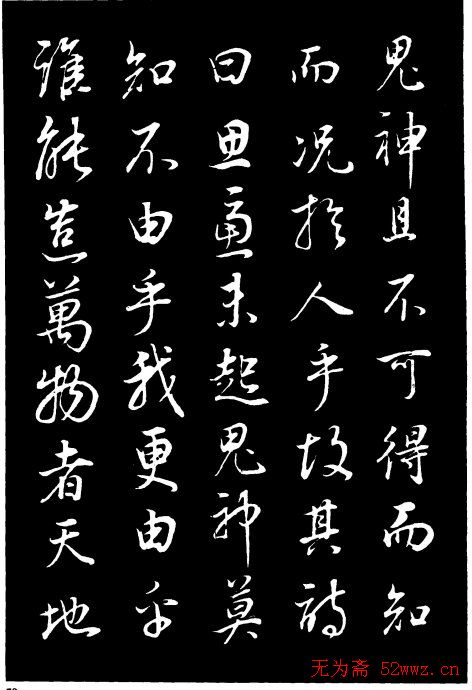 鬼神且不可得而知
而況於人乎故其詩
曰思慮未起鬼神莫
知不由乎我更由乎
誰能造萬物者天地
无为斋 52wwz.cn